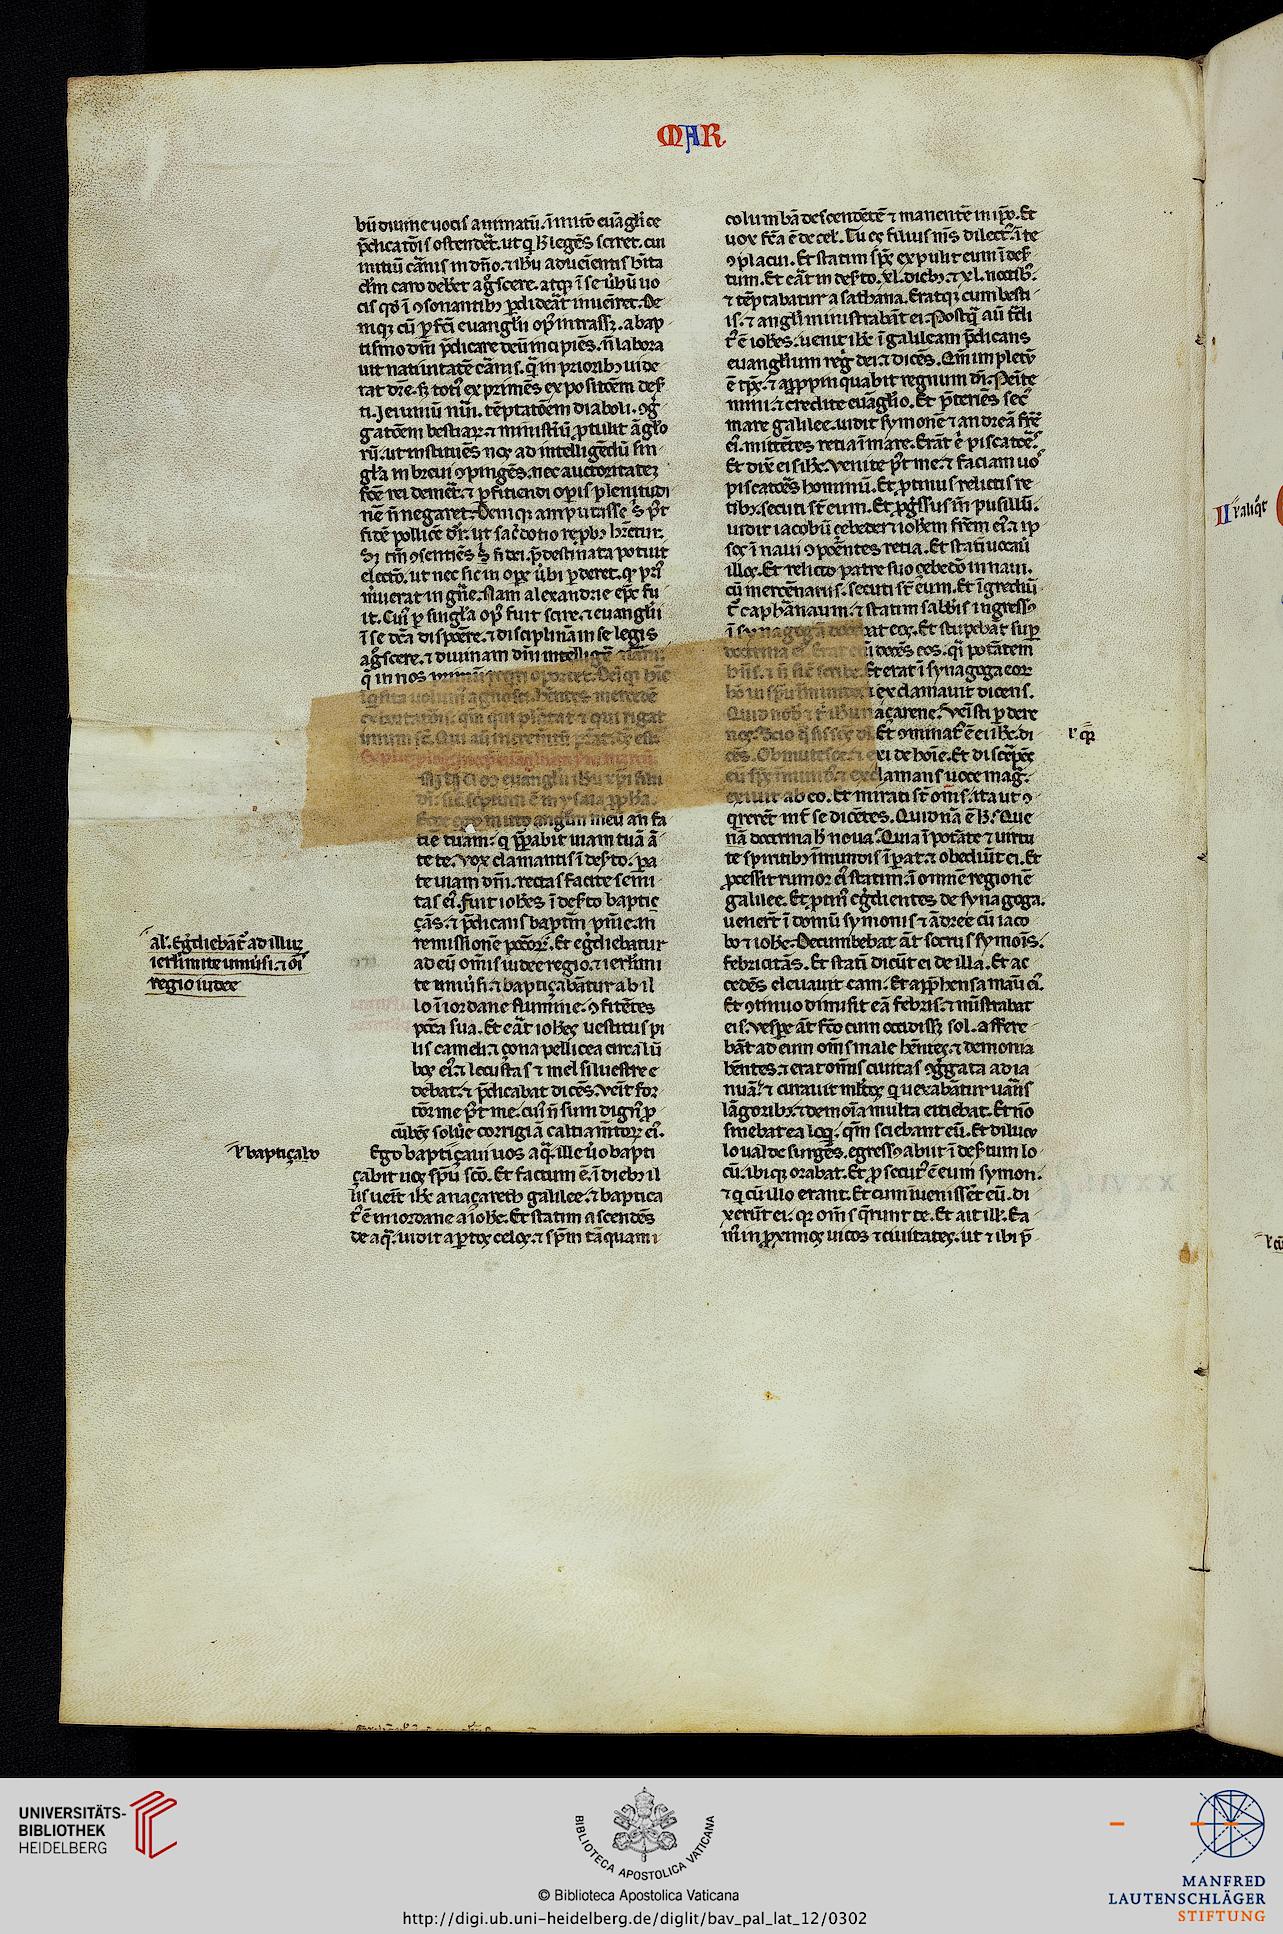 MAR
bū diuine uocis animatū. in inito euāglice
p̄dicatōis ostendēt. ut q̄ h̄ legēs sciret. cui
initiū carnis in dn̄o. ⁊ ihū aduenientis h̄ita
culm caro deberet agnoscere. atq; ī se ūbū uo
cis qd̄ ī ꝯsonantibꝫ pdideāt inueniret. De
niqꝫ cū pfcī euangl̄ii op̄ intrassꝫ. a bap
tismo dn̄i p̄dicare deū incipiēs. n̄ labora
uit natiuitatē carnis. q̄m in prioribꝫ uide
rat dr̄e. sꝫ totꝰ exprimēs expositōem des̄
ti. ieiuniū num̄. tēptatōem diaboli. ꝯg̃
gatōem bestiaꝝ. ⁊ ministīū ptulit āgl̄o
rū. ut instituēs nos ad intelligēdū sin
gl̄a in breui ꝯpingēs. nec auctoritatē
fcē rei demēt. ⁊ pficiendi opis plenitudi
nē n̄ negaret. Deniqꝫ amputasse s̄ p̄t
fidē pollicē dr̄. ut sac̄dotio repbꝰ hr̄etur.
Sꝫ tm̄ ꝯsentiēs s̄ fidei. p̄destinata potuit
electō. ut nec sic in ope ūbi pderet. qꝫ pꝰ
m̄uerat in gn̄e. Nam alexandrie epc̄ fu
it. Cuiꝰ p singl̄a opꝰ fuit scire. ⁊ euangl̄ii
ī se dc̄a dispoēre. ⁊ disciplinā in se legis
agnōscere. ⁊ diuinam dn̄i intelligē
q̄ in nos
unum st̄. Qui aū incremētū p̄stat. ds̄ est.
euangelii ihū xp̄i filii
di. sic̄ sc̄ptum ē in ysaia pp̄ha.
Ecce ego mitto angl̄m meū an̄ fa
tiē tuam. q p̄parabit uiam tuā ā
te te. Vox clamantis ī des̄to. pa
te uiam dn̄i. rectas facite semi
tas eiꝰ. Fuit ioh̄es ī des̄to baptiç
çās. ⁊ p̄dicans baptm̄ pnīe. in
remissionē pctōꝝ. Et eg̃diebatur
ad eū om̄is iudee regio. ⁊ ierl̄imi
te uniūsi. ⁊ baptiçabātur ab il
lo ī iordane flumīne. ꝯfitētes
pctā sua. Et eāt ioh̄es uestitus pi
lis cameli. ⁊ çona pellicea circa lū
bos eiꝰ. ⁊ locustas ⁊ mel siluestre e
debat. ⁊ p̄dicabat dicēs. Veīt for
tior me p̄t me. cuiꝰ n̄ sum dignꝰ p
cūbēs soluē corrigiā caltiamtoꝝ eiꝰ.
Ego baptiçaui uos aq̄. ille ūo bapti
çabit uos sp̄ū scō. Et factum ē. ī diebꝫ il
lis ueīt ih̄c a naçareth galilee. ⁊ baptica
tꝰ ē in iordane a ioh̄e. Et statim ascendēs
de aq̄. uidit aptos celos. ⁊ sp̄m tāquam
al. Eg̃diebāt ad illuꝫ
ierl̄imite uniūsi. ⁊ oīs
regio iudee
ł baptiçabo
columbā descendētē ⁊ manentē in ipo. Et
uox fc̄a ē de cel̄. Tu es filius m̄s dilectꝰ. ī te
ꝯplacui. Et statim sp̄c expulit eum ī des̄
tum. Et eāt in des̄to. xl. diebꝫ. ⁊ xl. noctibꝰ.
⁊ tēptabatur a sathana. Eratqꝫ cum besti
is. ⁊ angl̄i ministrabāt ei. Postq̄ aū t̄di
tꝰ ē ioh̄es. uenit ih̄c ī galileam p̄dicans
euangl̄ium reg̃ dei. ⁊ dicēs. Qm̄ impletū
ē tp̄c. ⁊ apppinquabit regnum dī. Penīte
mini. ⁊ credite euāgl̄io. Et p̄teriēs sec̄
mare galilee. uidit symonē ⁊ andreā fr̄ē
eiꝰ. mittētes retia ī mare. Erāt ē piscatoēs.
Et dix̄ eis ih̄c. Venite p̄t me. ⁊ faciam uos
piscatoēs hominū. Et ptinus relictis re
tibꝫ. secuti st̄ eum. Et pg̃ssus in̄ pusillū.
uidit iacobū çebedei ⁊ ioh̄em fr̄em eiꝰ. ⁊ ip
sos ī naui ꝯpoēntes retia. Et statī uocau
illos. Et relicto patre suo çebedō in naui.
cū mercēnariis. secuti st̄ eum. Et īgrediū
t̄ caphānaum. ⁊ statim sabb̄is ingressꝰ
ī synagogā docebat eos. Et stupebāt sup
doctrina eiꝰ. Erat ēi docēs eos. q̄i potātem
hn̄s. ⁊ n̄ sic̄ scribe. Et erat ī synagoga eoꝝ
hō in sp̄u īmundo. ⁊ exclamauit dicens.
Quid nob̄ ⁊ t̄ ihū naçarene. Venīsti pdere
nos. Scio q̄ sis scs̄ dī. Et ꝯminatꝰ ē ei ih̄c. di
cēs. Obmutesce. ⁊ exi de hoīe. Et discēpēs
eū sp̄c īmūdꝰ. ⁊ exclamans uoce mag̃.
exiuit ab eo. Et mirati st̄ om̄s. ita ut ꝯ
q̄rerēt int̄ se dicētes. Quidnā ē h̄. Que
nā doctrina h̄ noua. Quia ī potāte ⁊ uirtu
te spiritibꝫ īmundis īpat. ⁊ obediūt ei. Et
pcessit rumor eiꝰ statim. ī omnē regionē
galilee. Et ptinꝰ eg̃dientes de synagoga.
uenert̄ ī domū symonis ⁊ ādree cū iaco
bo ⁊ ioh̄e. Decumbebat āt socrus symoīs.
febricitās. Et statī dicūt ei de illa. Et ac
cedēs eleuauit eam. Et app̄hensa manu eiꝰ.
Et ꝯtinuo dimisit eā febris. ⁊ mīstrabat
eis. Vespe āt fc̄o cum occidissꝫ sol. affere
bāt ad eum om̄s male hn̄tes. ⁊ demonia
hn̄tes. ⁊ erat om̄is ciuitas ꝯg̃gata ad ia
nuā. ⁊ curauit ml̄tos q uexabātur uariis
lāgoribꝫ. ⁊ demoīa multa eitiebat. Et nō
sinebat ea loqi. qm̄ sciebant eū. Et diluco
lo ualde surgēs. egressꝰ abiit ī des̄tum lo
cū. ibiqꝫ orabat. Et psecutꝰ ē eum symon.
⁊ q cū illo erant. Et cum īuenissēt eū. di
xerūt ei. qꝫ om̄s q̄runt te. Et ait ill̄. Ea
mꝰ in pximos uicos ⁊ ciuitates. ut ⁊ ibi p̄
ł qꝫ
II
UNIVERSITÄTS-
BIBLIOTHEK
HEIDELBERG
BIBLIOTECA APOSTOLICA VATICANA
© Biblioteca Apostolica Vaticana
http://digi.ub.uni-heidelberg.de/diglit/bav_pal_lat_12/0302
MANFRED
LAUTENSCHLÄGER
STIFTUNG